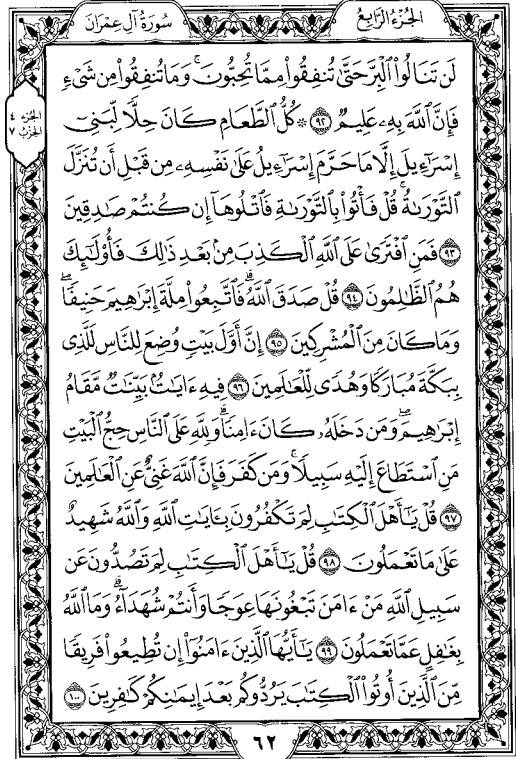 الجزء الرابع
سورة آل عمران
الجزء ٤
الحزب ٧
لَن تَنَالُوا۟ ٱلْبِرَّ حَتَّىٰ تُنفِقُوا۟ مِمَّا تُحِبُّونَ ۚ وَمَا تُنفِقُوا۟ مِن شَىْءٍ
فَإِنَّ ٱللَّهَ بِهِۦ عَلِيمٌ ٩٢ ۞ كُلُّ ٱلطَّعَامِ كَانَ حِلًّا لِّبَنِىٓ
إِسْرَٰٓءِيلَ إِلَّا مَا حَرَّمَ إِسْرَٰٓءِيلُ عَلَىٰ نَفْسِهِۦ مِن قَبْلِ أَن تُنَزَّلَ
ٱلتَّوْرَىٰةُ ۗ قُلْ فَأْتُوا۟ بِٱلتَّوْرَىٰةِ فَٱتْلُوهَآ إِن كُنتُمْ صَٰدِقِينَ
٩٣ فَمَنِ ٱفْتَرَىٰ عَلَى ٱللَّهِ ٱلْكَذِبَ مِنۢ بَعْدِ ذَٰلِكَ فَأُو۟لَٰٓئِكَ
هُمُ ٱلظَّٰلِمُونَ ٩٤ قُلْ صَدَقَ ٱللَّهُ ۗ فَٱتَّبِعُوا۟ مِلَّةَ إِبْرَٰهِيمَ حَنِيفًا ۖ
وَمَا كَانَ مِنَ ٱلْمُشْرِكِينَ ٩٥ إِنَّ أَوَّلَ بَيْتٍ وُضِعَ لِلنَّاسِ لَلَّذِى
بِبَكَّةَ مُبَارَكًا وَهُدًى لِّلْعَٰلَمِينَ ٩٦ فِيهِ ءَايَٰتٌۢ بَيِّنَٰتٌ مَّقَامُ
إِبْرَٰهِيمَ ۖ وَمَن دَخَلَهُۥ كَانَ ءَامِنًا ۗ وَلِلَّهِ عَلَى ٱلنَّاسِ حِجُّ ٱلْبَيْتِ
مَنِ ٱسْتَطَاعَ إِلَيْهِ سَبِيلًا ۚ وَمَن كَفَرَ فَإِنَّ ٱللَّهَ غَنِىٌّ عَنِ ٱلْعَٰلَمِينَ
٩٧ قُلْ يَٰٓأَهْلَ ٱلْكِتَٰبِ لِمَ تَكْفُرُونَ بِـَٔايَٰتِ ٱللَّهِ وَٱللَّهُ شَهِيدٌ
عَلَىٰ مَا تَعْمَلُونَ ٩٨ قُلْ يَٰٓأَهْلَ ٱلْكِتَٰبِ لِمَ تَصُدُّونَ عَن
سَبِيلِ ٱللَّهِ مَنْ ءَامَنَ تَبْغُونَهَا عِوَجًا وَأَنتُمْ شُهَدَآءُ ۗ وَمَا ٱللَّهُ
بِغَٰفِلٍ عَمَّا تَعْمَلُونَ ٩٩ يَٰٓأَيُّهَا ٱلَّذِينَ ءَامَنُوٓا۟ إِن تُطِيعُوا۟ فَرِيقًا
مِّنَ ٱلَّذِينَ أُوتُوا۟ ٱلْكِتَٰبَ يَرُدُّوكُم بَعْدَ إِيمَٰنِكُمْ كَٰفِرِينَ ١٠٠
٦٢